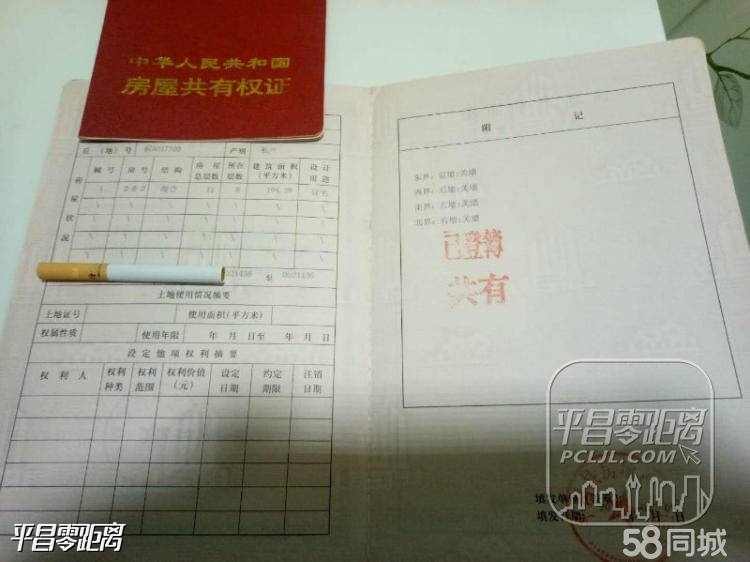 中华人民共和国
房屋共有权证
丘（地）号
产别
房屋状况
幢号
房号
结构
房屋总层数
所在层数
建筑面积（平方米）
设计用途
土地使用情况摘要
土地证号
使用面积(平方米)
权属性质
使用年限
年 月 日至 年 月 日
设定他项权利摘要
权利人
权利种类
权利范围
权利价值（元）
设定日期
约定期限
注销日期
附 记
已登簿
共有
平昌零距离
PCLJL.COM
填发单位
填发日期
平昌零距离
58同城